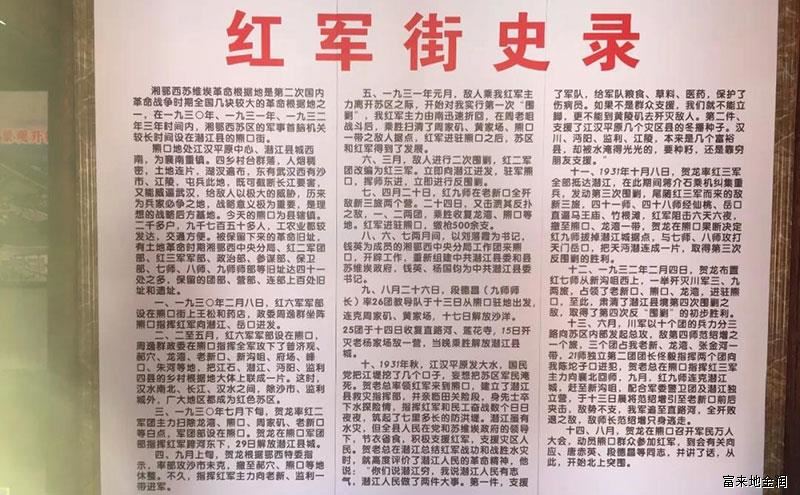 红军街史录
湘鄂西苏维埃革命根据地是第二次国内
革命战争时期全国几块较大的革命根据地之
一，在一九三〇、一九三一、一九三二
年三年时间内，湘鄂西苏区的军事首脑机关
较长时间设在潜江县的熊口街。
熊口地处江汉平原中心、潜江县城西
南，为襄南重镇。四乡村台群落，人烟稠
密，土地连片，湖汊遍布，东有武汉西有沙
市、江陵，屯兵此地，既可截断长江要害，
又能威逼武汉，给敌人以极大的威胁，历来
为兵家必争之地，战略意义极为重要，是理
想的战略后方基地。今天的熊口为县辖镇。
二千多户，九千七百五十多人，工农业都较
发达，交通方便。被保留下来的革命旧址，
有土地革命时期湘鄂西中央分局、红二军团
部、红三军军部、政治部、参谋部、保卫
部、七师、八师、九师师部等旧址达四十一
处之多，保留的团部、营部、连部上百处旧
址和遗址。
一、一九三〇年二月八日，红六军军部
设在熊口街上王松和药店，政委周逸群坐阵
熊口指挥红军向潜江、岳口进发。
二、二至五月，红六军军部设在熊口，
周逸群政委在熊口指挥全军攻下了普济观、
郝穴、龙湾、老新口、新沟咀、府场、峰
口、朱河等地，把江石、潜江、沔阳、监利
四县的乡村根据地大体上联成一片。这时，
汉水南北、长江、汉水之间，除沙市、监利
城外，广大地区都成为红色苏区。
三、一九三〇年七月下旬，贺龙率红二
军团主力扫除龙湾、熊口、周家矶、老新口
等白点，军团部设在熊口。贺龙在熊口军团
部指挥红军跨河东下，29日解放潜江县城。
四、九月上旬，贺龙根据鄂西特委指
示，率部攻沙市未克，撤至郝穴、熊口等地
休整。不久，指挥红军主力向老新、监利一
带进军。
五、一九三一年元月，敌人乘我红军主
力离开苏区之际，开始对我实行第一次“围
剿”，我红军主力由南迅速折回，在周老咀
战斗后，乘胜扫清了周家矶、黄家场、熊口
一带之敌人据点，红军进驻熊口之后，苏区
和红军得到了发展。
六、三月，敌人进行二次围剿，红二军
团改编为红三军。立即向潜江进发，驻军熊
口，挥师东进，立即进行反围剿。
七、四月二十日，红九师在老新口全开
敌新三旅两个营。二十四日，又击溃其反扑
之敌，一、二两团，乘胜收复龙湾、熊口等
地。红军进驻熊口，缴枪500余支。
八、六、七两月间，以刘落霞为书记，
钱英为成员的湘鄂西中央分局工作团来熊
口，开辟工作，重新组建中共潜江县委和县
苏维埃政府，钱英、杨国钧为中共潜江县委
书记。
九、八月二十六日，段德昌（九师师
长）率26团教导队于十三日从熊口驻地出发，
连克周家矶、黄家场，十七日解放沙洋。
25团于十四日收复直路河、莲花寺，15日歼
灭老杨家场敌一营，当晚乘胜解放潜江县
城。
十、1931年秋，江汉平原发大水，国民
党把江堤挖了几个口子，妄想把苏区军民淹
死。贺老总率领红军来到熊口，建立了潜江
县救灾指挥部，并亲临田关险段，身先士卒
下水探险情，指挥红军和民工奋战数个日日
夜夜，筑起了七里多长的历洪堤。潜江虽有
水灾，但全县人民在党和苏维埃政府的领导
下，节衣省食，积极支援红军，支援灾区人
民。贺老总在潜江总结红军战功和战胜水灾
时，就高度评价了潜江人民的革命精神，他
说：“你们说潜江穷，我说潜江人民有志
气，潜江人民做了两件大事。第一件，支援
了军队，给军队粮食、草料、医药，保护了
伤病员。如果不是群众支援，我们就不能立
脚，更不能到黄陵矶去歼灭敌人。第二件，
支援了江汉平原几个灾区县的冬播种子。汉
川、沔阳、监利、江陵，本来是几个富裕
县，却被水淹得光光的，要种籽，还是靠穷
朋友支援。”
十一、1931年十月八日，贺龙率红三军
全部抵达潜江，在此期间蒋介石乘机纠集重
兵，发动第三次围剿，尾随红三军而来的敌
新三旅，四十一师、四十八师经仙桃、岳口
直逼马王庙、竹根滩，红军阻击六天六夜，
撤至熊口、龙湾一带，贺龙在熊口果断决定
红九师拔掉潜江城据点，与七师、八师攻打
天门岳口，把天沔潜连成一片，取得第三次
反围剿的胜利。
十二、一九三二年二月四日，贺龙布置
红七师从新沟咀西上，一举歼灭川军三、九
两旅，占领了老新口、熊口、龙湾，进驻熊
口，至此，肃清了潜江县境第四次围剿之
敌，取得了第四次反“围剿”的初步胜利。
十三、六月，川军以十个团的兵力分三
路向苏区内部发起总攻，敌第四师范绍增之
一个旅，三个团占我老新、龙湾、张金河一
带，21师独立第二团团长佟毅指挥两个团向
我陈坨子口进犯，贺龙在熊口总指挥红三军
主力向襄北回师，九月，红九师连克潜江
城，赶至新沟咀，配合军委警卫团及潜江独
立营，于十三日晨将范绍增引至老新口前后
夹击，敌势不支，我军追至直路河，全歼败
退之敌，敌师长范绍增只身逃走。
十四、八月，贺龙在熊口召开军民万人
大会，动员熊口群众参加红军，到会有关向
应、唐赤英、段德昌等同志，并讲了话，从
此，开始北上突围。
富来地金阁